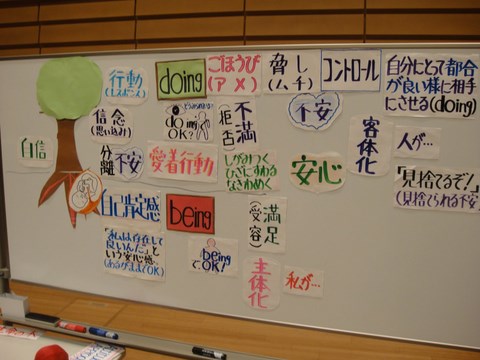 行動
(レスポンス)
doing
ごほうび
(アメ)
脅し
(ムチ)
コントロール
自分にとって都合
が良い様に相手
にさせる(doing)
信念
(思い込み)
doing
OK?
不満
拒否
不安
客体化
人が…
自信
分離不安
愛着行動
しがみつく
ひざにすわる
なきわめく
安心
「見捨てるぞ!」
(見捨てられる不安)
自己肯定感
being
満足
(受容)
「私は存在して
良いんだ」と
いう安心感。
(ありのままでOK)
being
で、OK!
主体化
私が…